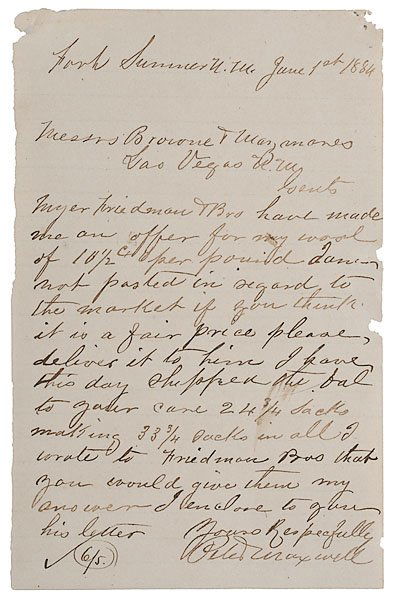 Fort Sumner N.M. June 1st 1884
Messrs Browne & Manzanares
Las Vegas N.M.
Gents
Myer Friedman & Bro have made
me an offer for my wool
of 10 1/2 cts per pound I am
not posted in regard to
the market if you think
it is a fair price please
deliver it to him I have
this day shipped the bal
to your care 24 3/4 sacks
making 33 3/4 sacks in all I
wrote to Friedman Bros that
you would give them my
answer I enclose to you
his letter Yours Respecfully
✓ 6/5. Peter Maxwell